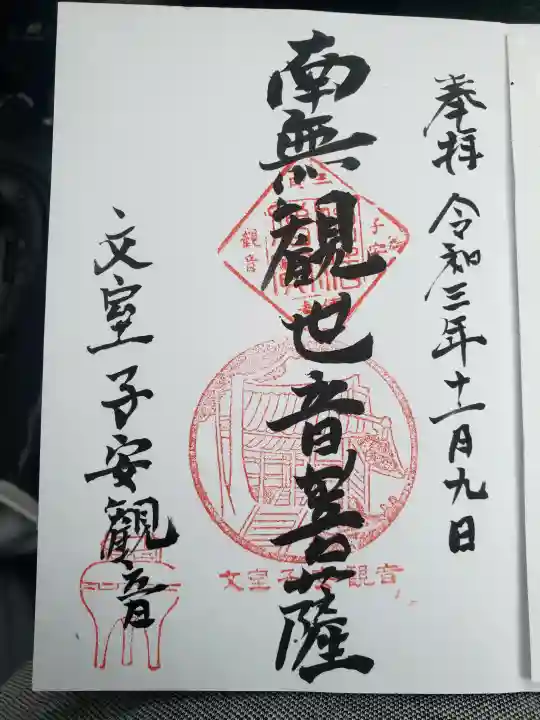 奉拝 令和三年十一月九日
南無観世音菩薩
文室子安観音
子安
観音
文室子安観音